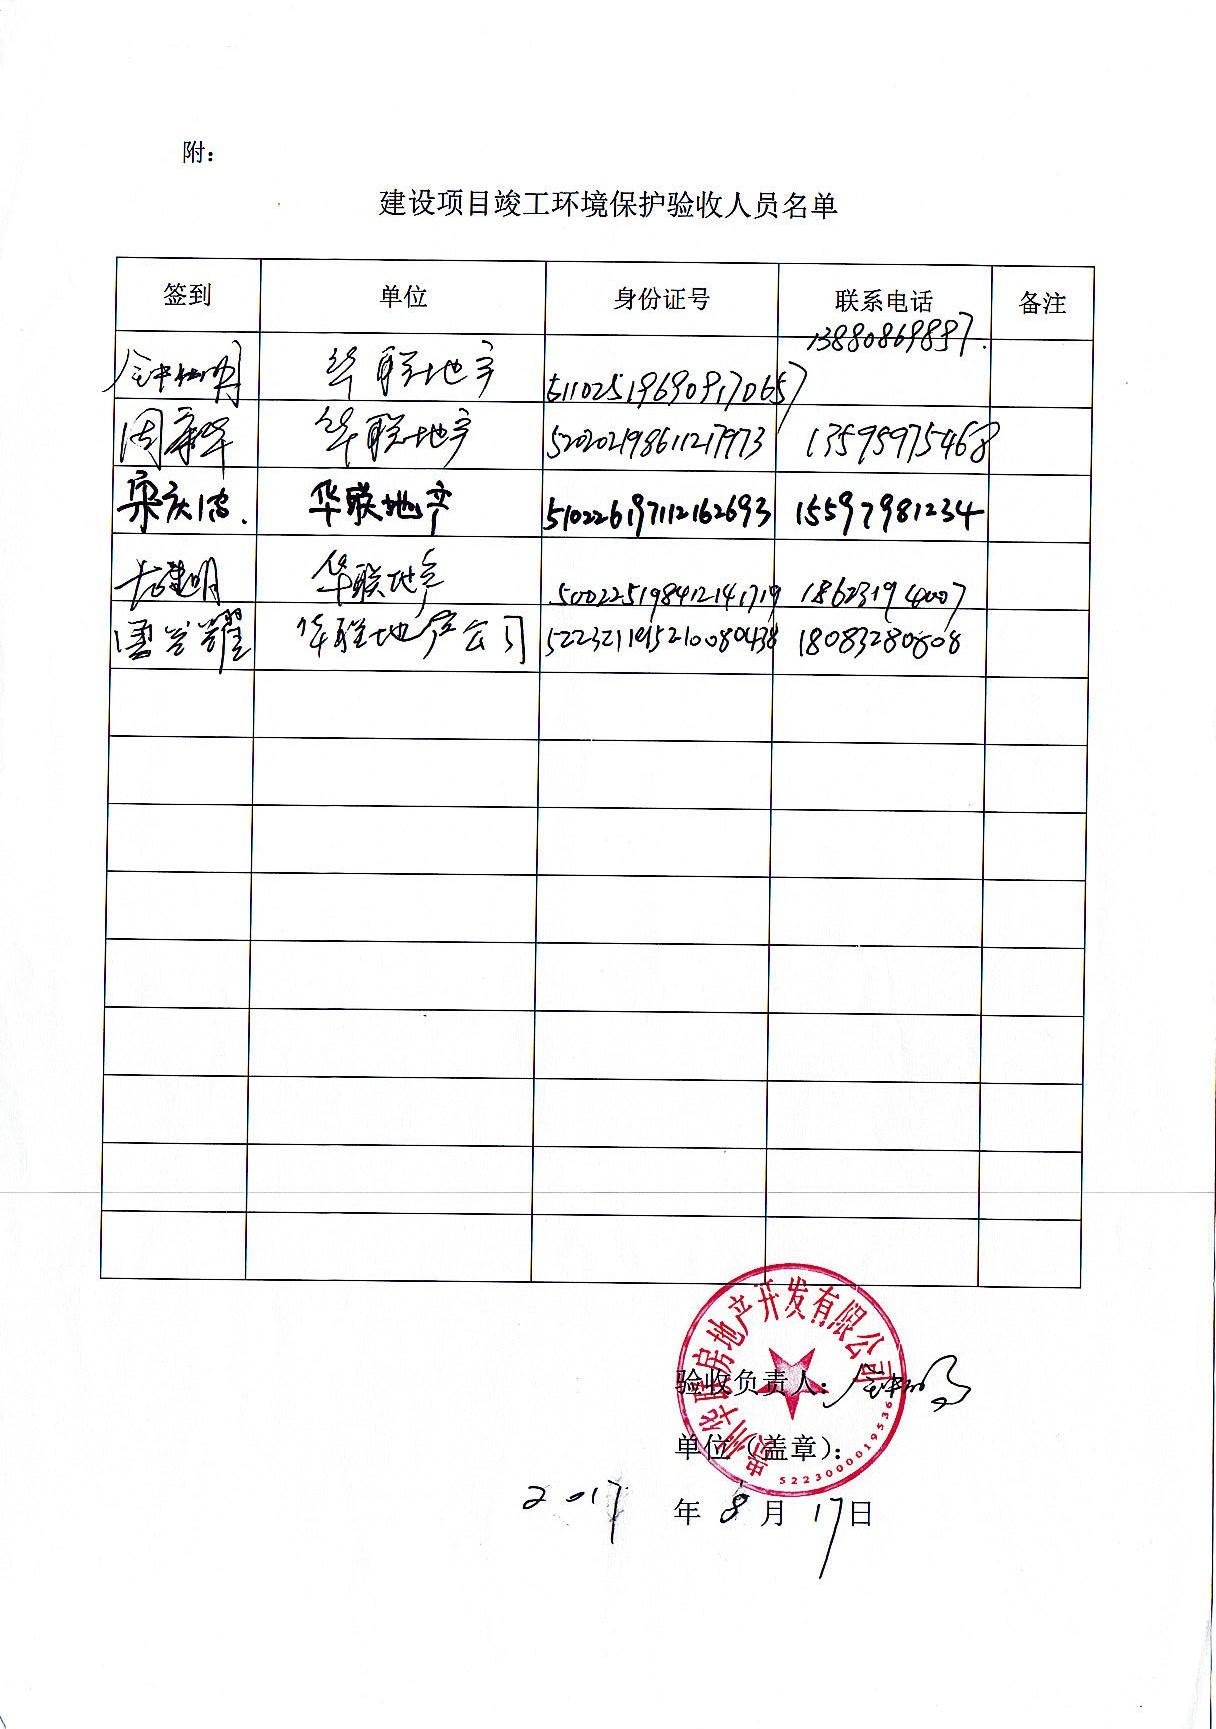 附：
建设项目竣工环境保护验收人员名单
签到 单位 身份证号 联系电话 备注
华联地产 511025196909170657 13880869887.
周康华 华联地产 520202198611217973 13595975468
宋庆浓. 华联地产 510226197112162693 15597981234
龙建明 华联地产 500225198412141719 18623194007
华联地产公司 522321195210080438 18083280808
贵州华联房地产开发有限公司
验收负责人：
单位（盖章）：
5223000019536
2017年8月17日